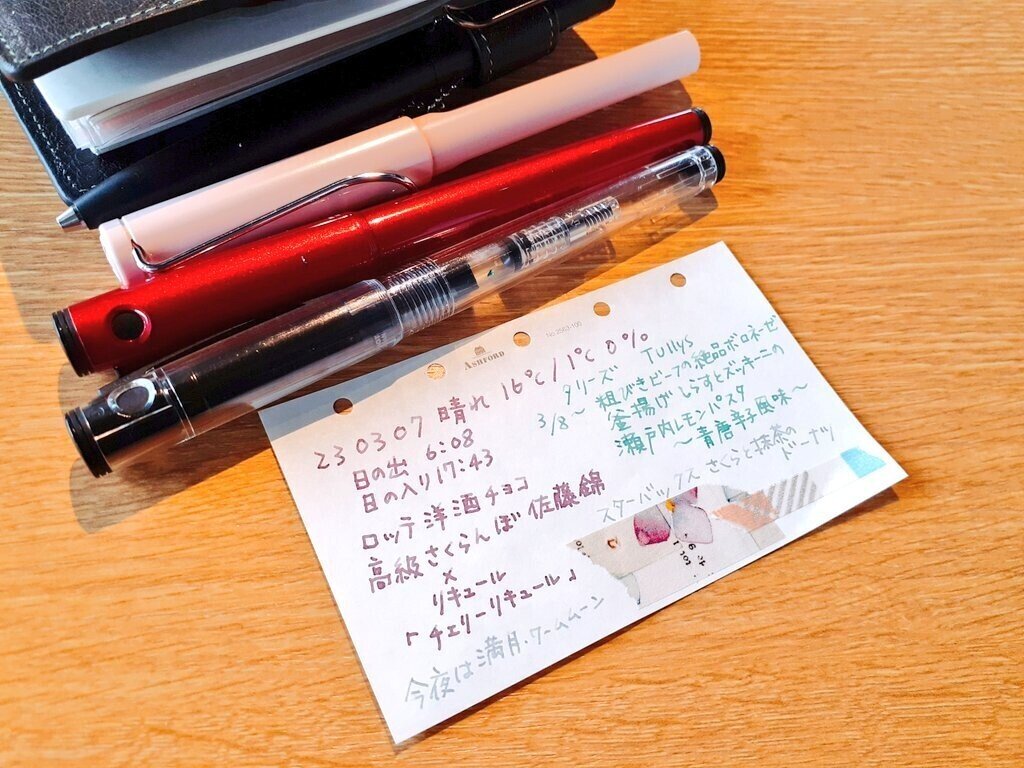 No.2563-100
ASHFORD
230307 晴れ 16℃/1℃ 0%
日の出 6:08
日の入り 17:43
ロッテ 洋酒チョコ
高級さくらんぼ 佐藤錦
×
リキュール
「チェリーリキュール」
今夜は満月・ワームムーン
タリーズ Tullys
3/8~ 粗びきビーフの絶品ボロネーゼ
釜揚げしらすとズッキーニの
瀬戸内レモンパスタ
~青唐辛子風味~
スターバックス さくらと抹茶の
ドーナツ